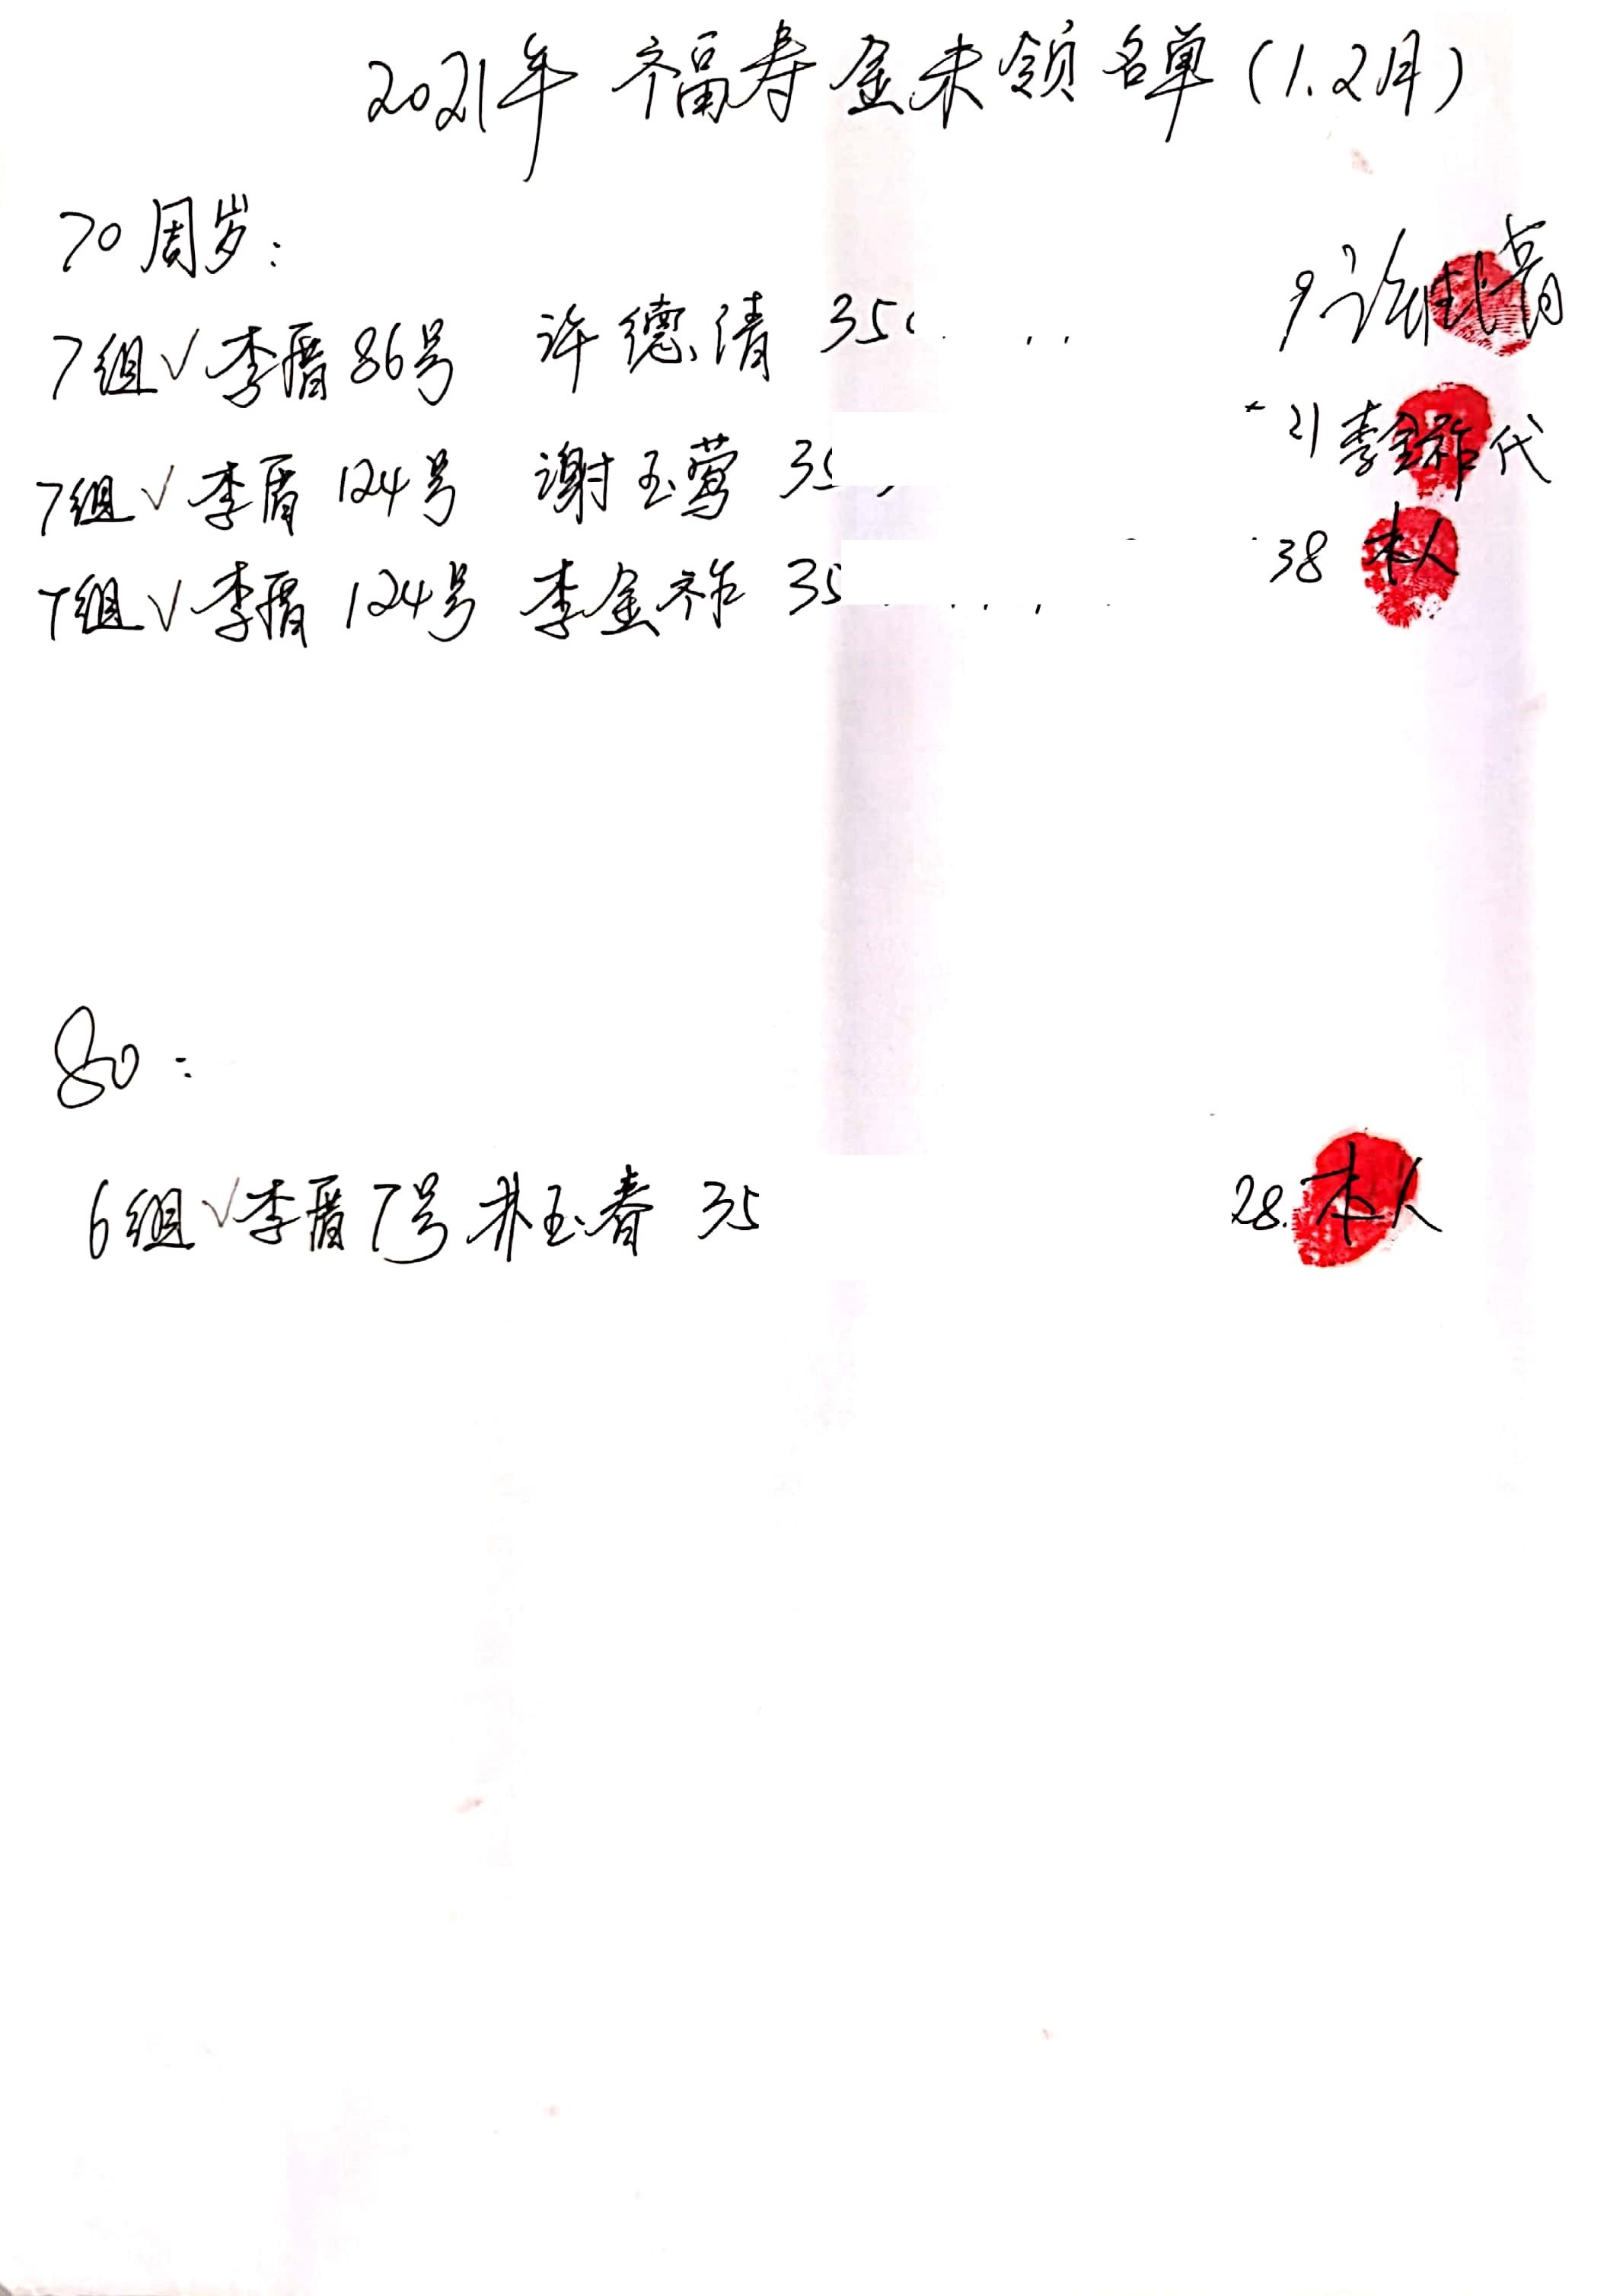 2021年 齐福寿金未领名单(1.2月)
70周岁:
7组√李厝86号 许德清 35 9 许德清
7组√李厝124号 谢玉莺 35 21 李金祚代
7组√李厝124号 李金祚 35 38 本人
80:
6组√李厝7号 林玉春 35 28. 本人